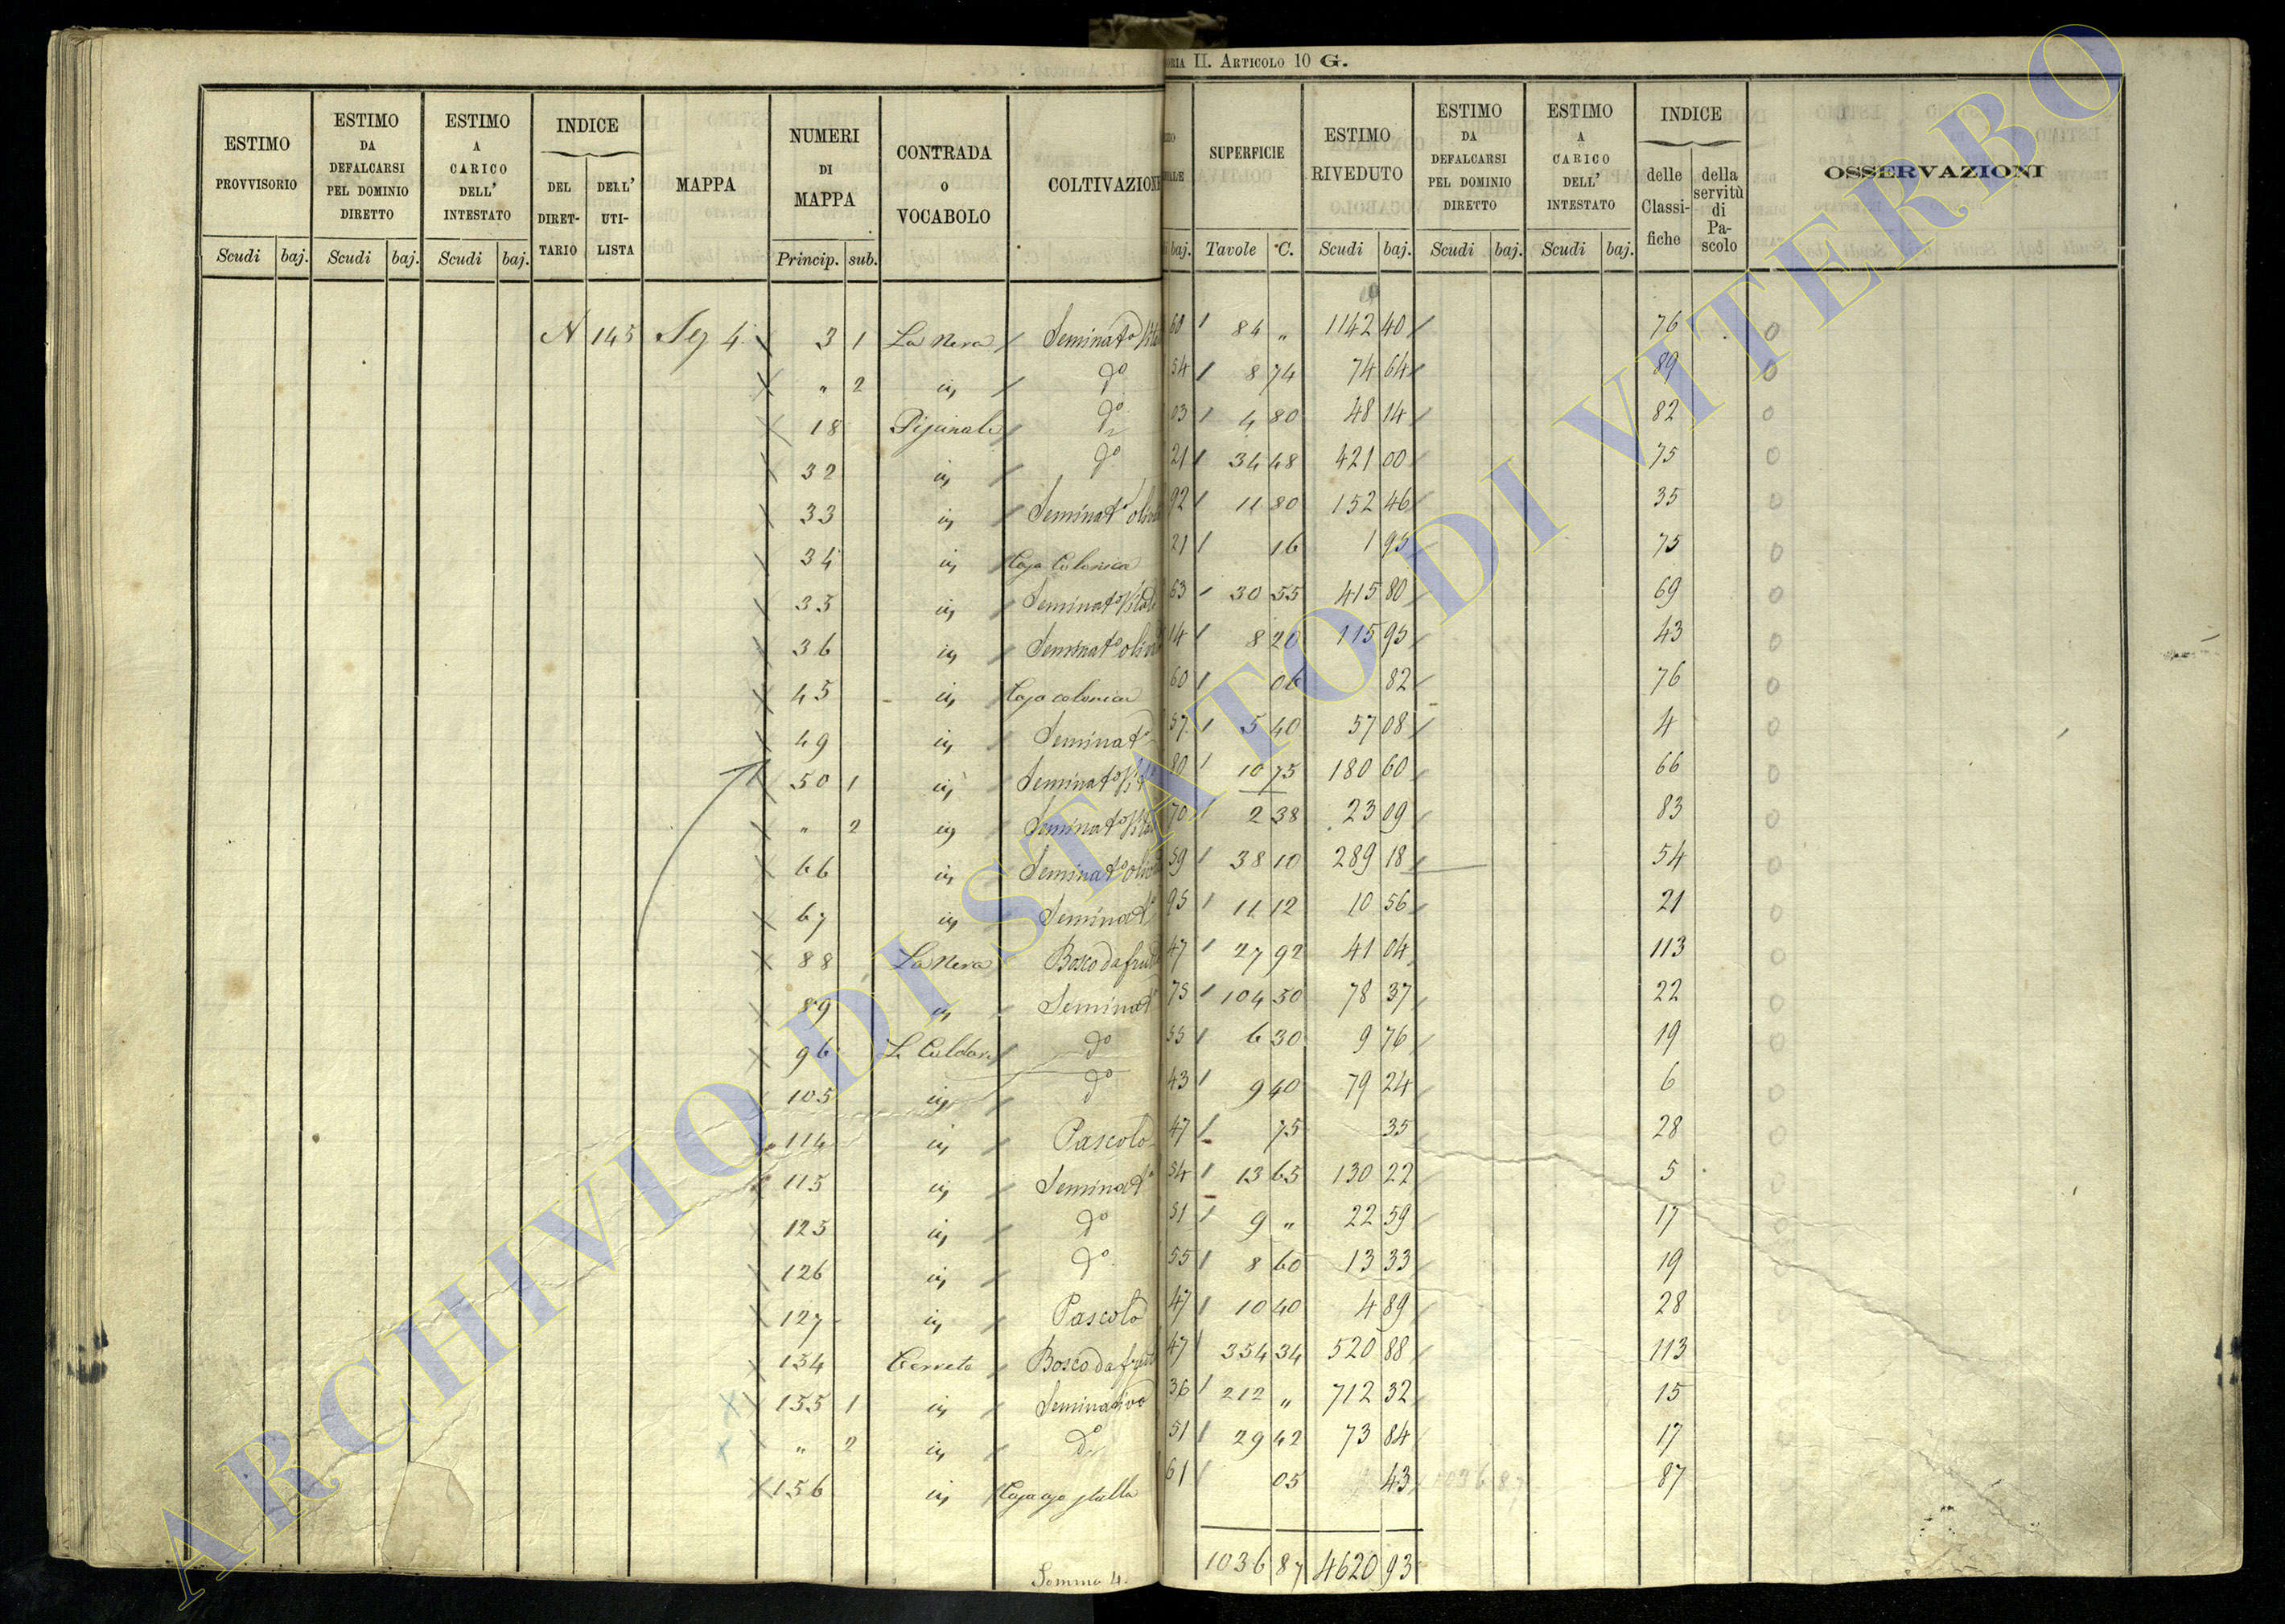 ORIA II. ARTICOLO 10 G.
ESTIMO PROVVISORIO
ESTIMO DA DEFALCARSI PEL DOMINIO DIRETTO
ESTIMO A CARICO DELL' INTESTATO
INDICE
DEL DIRET-TARIO
DELL' UTI-LISTA
MAPPA
NUMERI DI MAPPA
CONTRADA O VOCABOLO
COLTIVAZIONE
SUPERFICIE
ESTIMO RIVEDUTO
ESTIMO DA DEFALCARSI PEL DOMINIO DIRETTO
ESTIMO A CARICO DELL' INTESTATO
INDICE
delle Classi-fiche
della servitù di Pa-scolo
OSSERVAZIONI
Scudi baj. Scudi baj. Scudi baj. Princip. sub. baj. Tavole C. Scudi baj. Scudi baj. Scudi baj.
N 145 Seg 4 3 1 La Nera Seminato Vita 60 84 „ 1142 40 76 0
„ 2 in do 54 8 74 74 64 89 0
18 do 03 4 80 48 14 82 0
32 in do 21 34 48 421 00 75 0
33 in Seminato oliva 92 11 80 152 46 35 0
34 in Casa Colonica 21 16 1 95 75 0
35 in Seminato Vitat 63 30 55 415 80 69 0
36 in Seminato oliva 14 8 20 115 95 43 0
45 in Casa colonica 60 06 82 76 0
49 in Seminato 57 5 40 57 08 4 0
50 1 in Seminato Vit 80 10 75 180 60 66 0
„ 2 in Seminato Vita 70 2 38 23 09 83 0
66 in Seminato oliva 59 38 10 289 18 54 0
67 in Seminato 95 11 12 10 56 21 0
88 La Nera Bosco da frutt 47 27 92 41 04 113 0
89 in Seminato 75 104 50 78 37 22 0
96 do 55 6 30 9 76 19 0
105 in do 43 9 40 79 24 6 0
114 in Pascolo 47 75 35 28 0
115 in Seminato 54 13 65 130 22 5 0
125 in do 51 9 „ 22 59 17 0
126 in do 55 8 60 13 33 19 0
127 in Pascolo 47 10 40 4 89 28
154 Cerreto Bosco da frutt 47 354 34 520 88 113
155 1 in Seminativo 36 212 „ 712 32 15
„ 2 in do 51 29 42 73 84 17
156 in 61 05 43 87
Somma 4. 1036 87 4620 93
ARCHIVIO DI STATO DI VITERBO